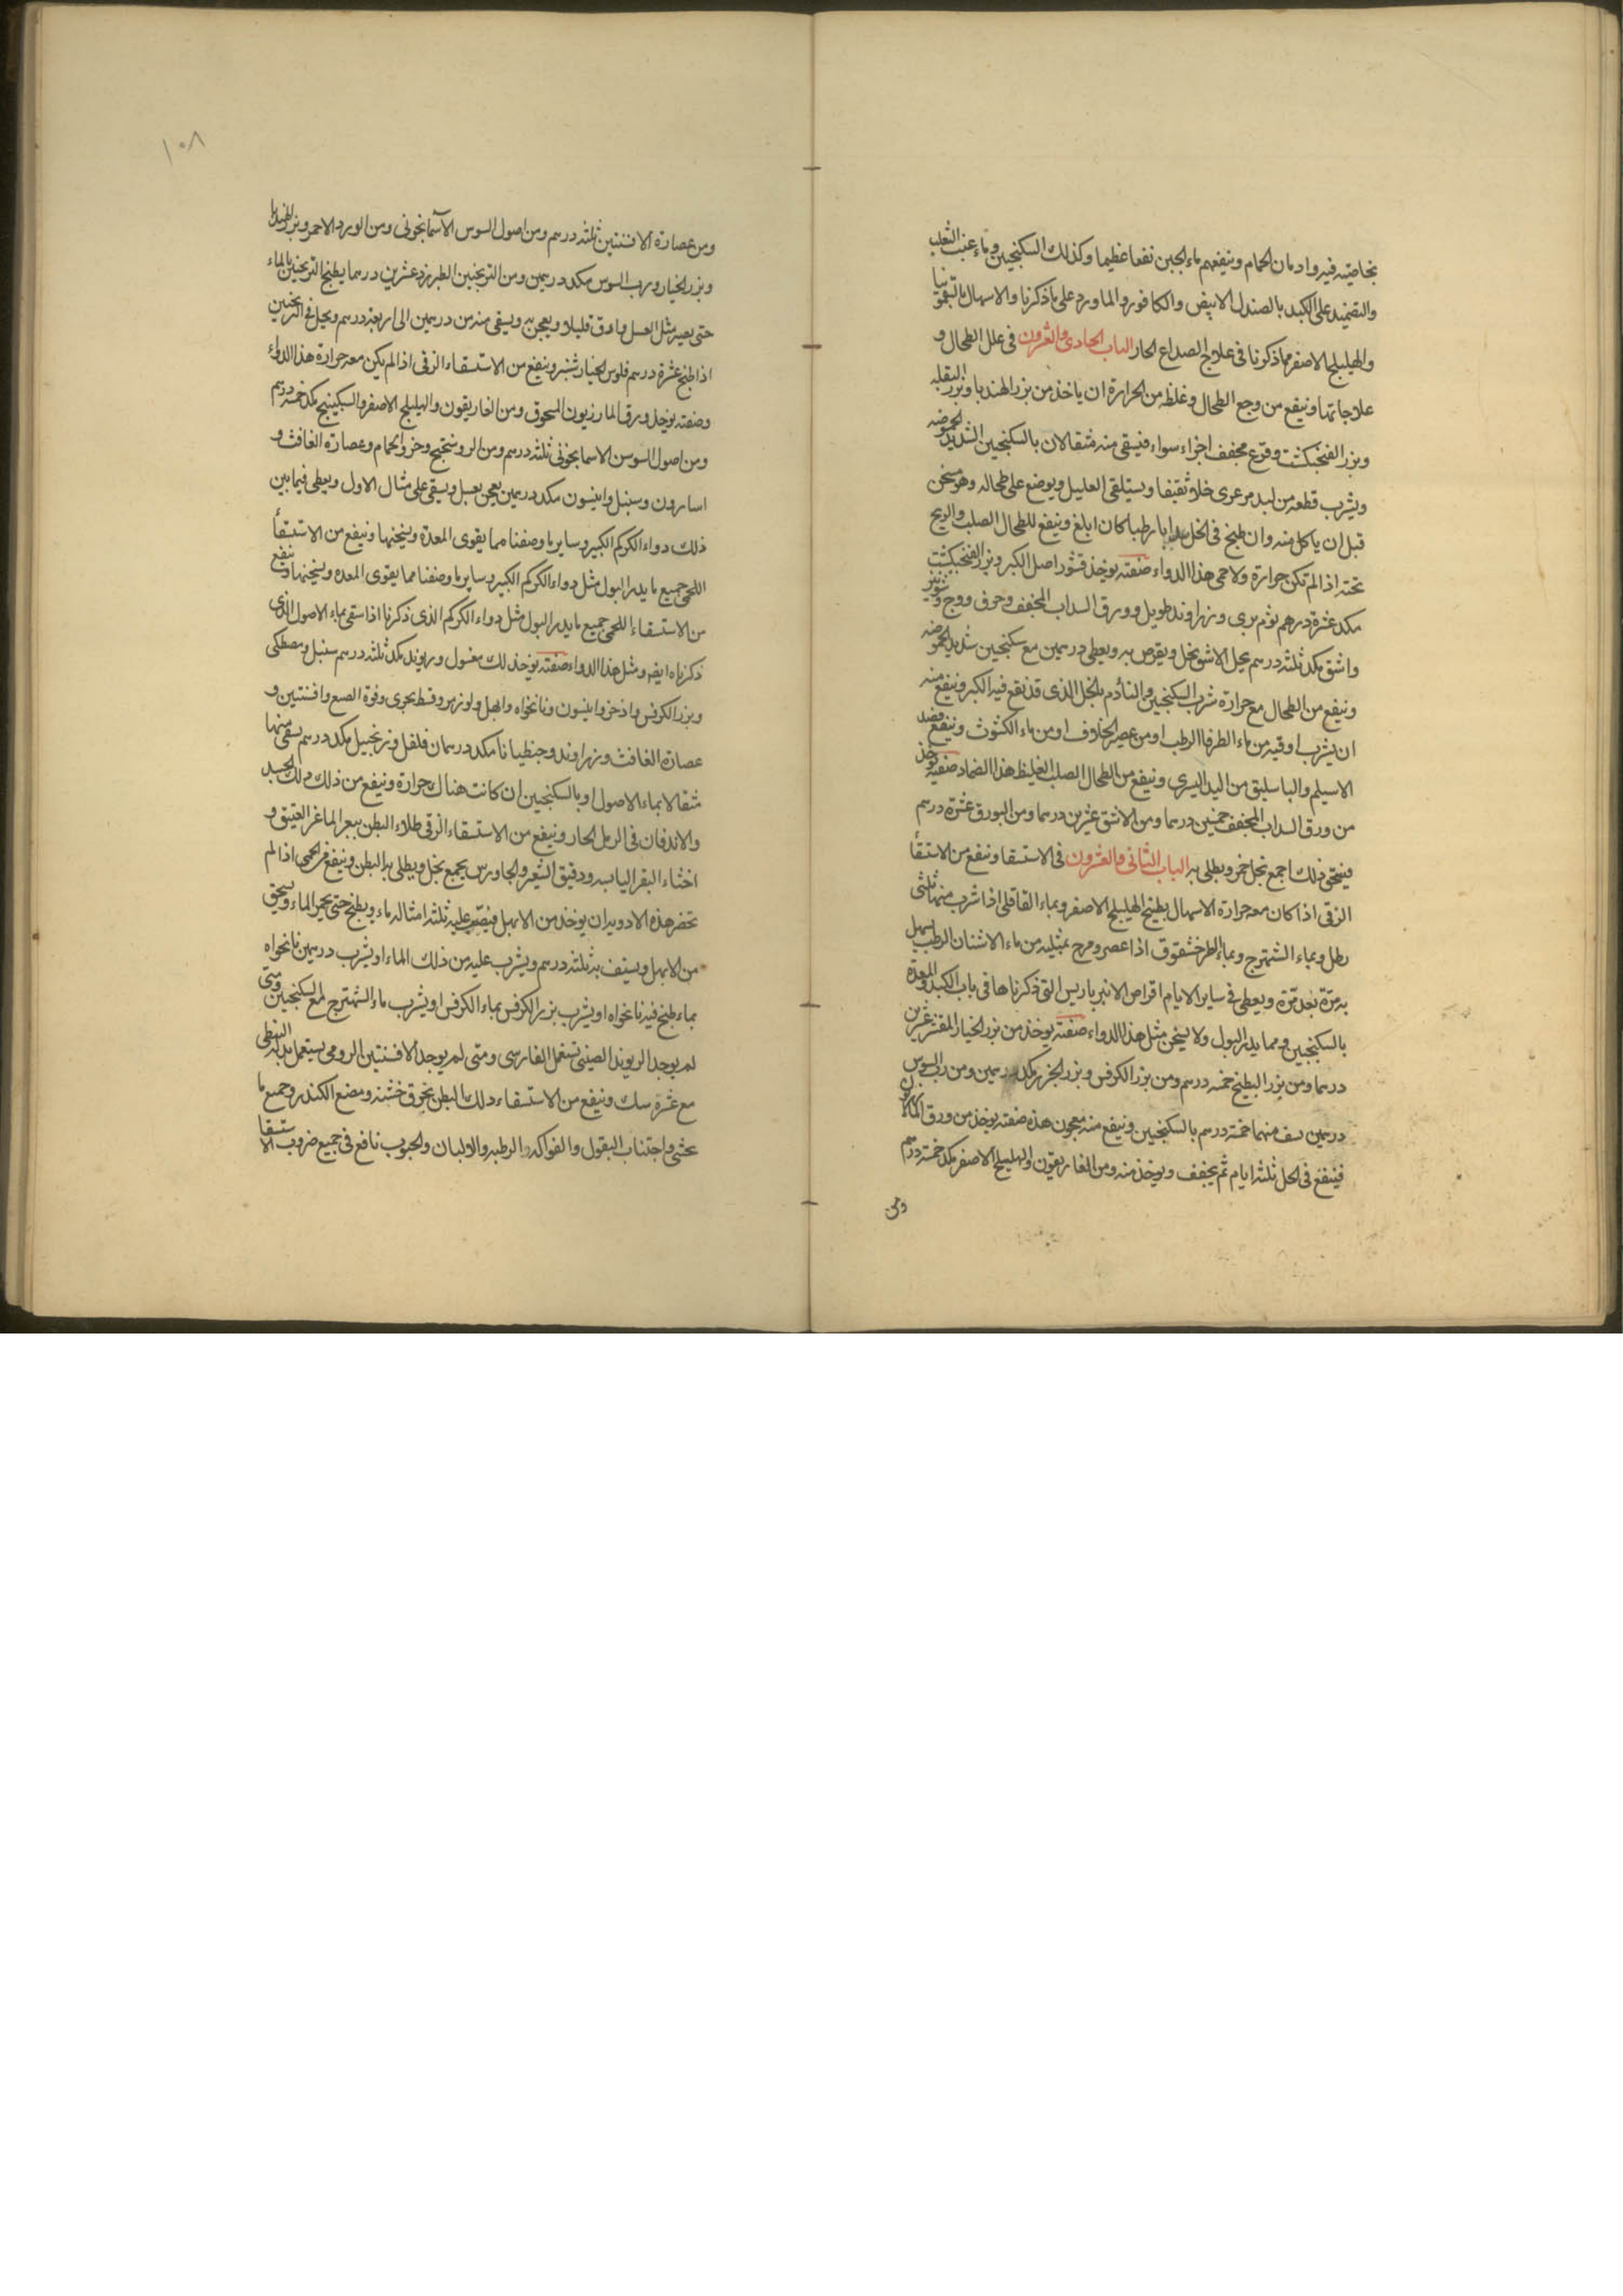 بخاصيته فيه وادمان الحمام وينفعهم ماء الجبن نفعا عظيما وكذلك السكنجبين وماء عنب الثعلب
والتضميد على الكبد بالصندل الابيض والكافور والماورد على ما ذكرنا والاسهال بالتمر
والهليلج الاصفر مما ذكرنا فى علاج الصداع الحار الباب الحادى والعشرون فى علل الطحال و
علاجاتها وينفع من وجع الطحال وغلظه من الحرارة ان ياخذ من بزر الهندبا وبزر البقله
وبزر الفنجنكشت وقرع مجفف اجزاء سواء فيسقى منه مثقالان بالسكنجبين الشديد الحموضه
ويشرب قطعه من لبد مرعزى خلا ثقيفا ويستلقى العليل ويوضع على طحاله وهو سخن
قبل ان ياكل منه وان طبخ فى الخل سدابا رطبا كان ابلغ وينفع للطحال الصلب والريح
تحته اذا لم تكن حرارة ولا حمى هذا الدواء صفته يوخذ قشور اصل الكبر وبزر الفنجنكشت
مكد عشرة درهم ثوم برى وزراوند طويل وورق السداب المجفف وحرف ووج وشونيز
واشق مكد ثلثه درسم يحل الاشق بخل ويقرص به ويعطى درسمين مع سكنجبين شديد الحموضه
وينفع من الطحال مع حرارة شرب السكنجبين والتأدم بالخل الذى قد نقع فيه الكبر وينفع منه
ان يشرب اوقيه من ماء الطرفا الرطب او من عصير الخلاف او من ماء الكشوث وينفع فصد
الاسيلم والباسليق من اليد اليسرى وينفع من الطحال الصلب الغليظ هذا الضماد صفته يوخذ
من ورق السداب المجفف خمسين درسما ومن الاشق عشرين درسما ومن البورق عشرة درسم
فيسحق ذلك اجمع بخل خمر ويطلى به الباب الثانى والعشرون فى الاستسقا وينفع من الاستسقأ
الزقى اذا كان معه حرارة الاسهال بطبيخ الهليلج الاصفر وبماء القاقلى اذا شرب منهما ثلثى
رطل وبماء الشهترج وبماء الطرخشقوق اذا عصر ومرج بمثليه من ماء الاشنان الرطب يسهل
به مرّة بعد مرّة ويعطى فى ساير الايام اقراص الانبرباريس التى ذكرناها فى باب الكبد والمعدة
بالسكنجبين ومما يدر البول ولا يسخن مثل هذا الدواء صفته يوخذ من بزر الخيار المقشر عشرين
درسما ومن بزر البطيخ خمسه درسم ومن بزر الكرفس وبزر الجزر مكد درسمين ومن رب السوس
درسمين يسف منهما خمسة درسم بالسكنجبين وينفع منه معجون هذه صفته يوخذ من ورق المازريون
فينقع فى الخل ثلثه ايام ثم يجفف ويوخذ منه ومن الغاريقون والهليلج الاصفر مكد خمسة درسم
ومن
١٠٨
ومن عصارة الافسنتين ثلثه درسم ومن اصول السوس الآسمانجونى ومن الورد الاحمر وبزر الهندبا
وبزر الخيار ورب السوس مكد درسمين ومن الترنجبين الطبرزد عشرين درسما يطبخ الترنجبين بالماء
حتى يصير مثل العسل وادق قليلا ويعجن به ويسقى منه من درسمين الى اربعة درسم ويحل فى الترنجبين
اذا طبخ عشرة درسم فلوس الخيار شنبر وينفع من الاستسقاء الزقى اذا لم يكن معه حرارة هذا الدواء
وصفته يوخذ ورق المازريون المسحوق ومن الغاريقون والهليلج الاصفر والسكبينج مكد خمسه درسم
ومن اصول السوسن الاسمانجونى ثلثه درسم ومن الروسختج وخرو الحمام وعصارة الغافث و
اسارون وسنبل وانيسون مكد درسمين يعجن بعسل ويسقى على مثال الاول ويعطى فيما بين
ذلك دواء الكركم الكبير وساير ما وصفنا مما يقوى المعدة ويسخنها وينفع من الاستسقأ
اللحمى جميع ما يدر البول مثل دواء الكركم الكبير وساير ما وصفنا مما يقوى المعده ويسخنها وينفع
من الاستسقاء اللحمى جميع ما يدر البول مثل دواء الكركم الذى ذكرنا اذا سقى بماء الاصول الذى
ذكرناه ايضه ومثل هذا الدواء صفته يوخذ لك مغسول وريوند مكد ثلثه درسم سنبل ومصطكى
وبزر الكرفس واذخر وانيسون ونانخواه وابهل ولوز مر وقسط بحرى وفوة الصبغ وافسنتين و
عصارة الغافث وزراوند وجنطيانا مكد درسمان فلفل وزنجبيل مكد درسم يسقى منها
مثقالا بماء الاصول او بالسكنجبين ان كانت هناك حرارة وينفع من ذلك دلك الجسد
والاندفان فى الرمل الحار وينفع من الاستسقاء الزقى طلاء البطن ببعر الماعز العتيق و
اخثاء البقر اليابسه ودقيق الشعير والجاورس يجمع بخل ويطلى به البطن وينفع من الحمى اذا لم
تحضر هذه الادويه ان يوخذ من الابهل فيصب عليه ثلثه امثاله ماء ويطبخ حتى يحمر الماء ويسحق
من الابهل ويستف به ثلثه درسم ويشرب عليه من ذلك الماء او يشرب درسمين نانخواه
بماء طبخ فيه نانخواه او يشرب بزر الكرفس بماء الكرفس او يشرب ماء الشهترج مع السكنجبين ومتى
لم يوجد الريوند الصينى تستعمل الفارسى ومتى لم يوجد الافسنتين الرومى يستعمل بدله النبطى
مع عشرة سك وينفع من الاستسقاء دلك البطن بخرق خشنه ومضغ الكندر وجميع ما
يحشى واجتناب البقول والفواكه الرطبه والالبان والحبوب نافع فى جميع ضروب الاستسقا